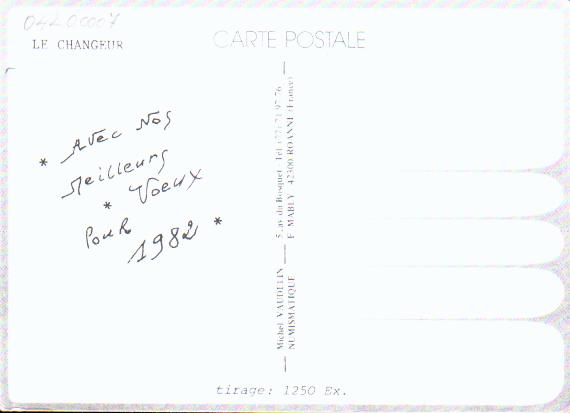 04200007
LE CHANGEUR
CARTE POSTALE
* Avec Nos
Meilleurs
* Voeux
Pour
1982 *
Michel VAUDELIN 5, av du Bosquet Tél (77) 71 97 76
NUMISMATIQUE F MABLY 42300 ROANNE (France)
tirage: 1250 Ex.